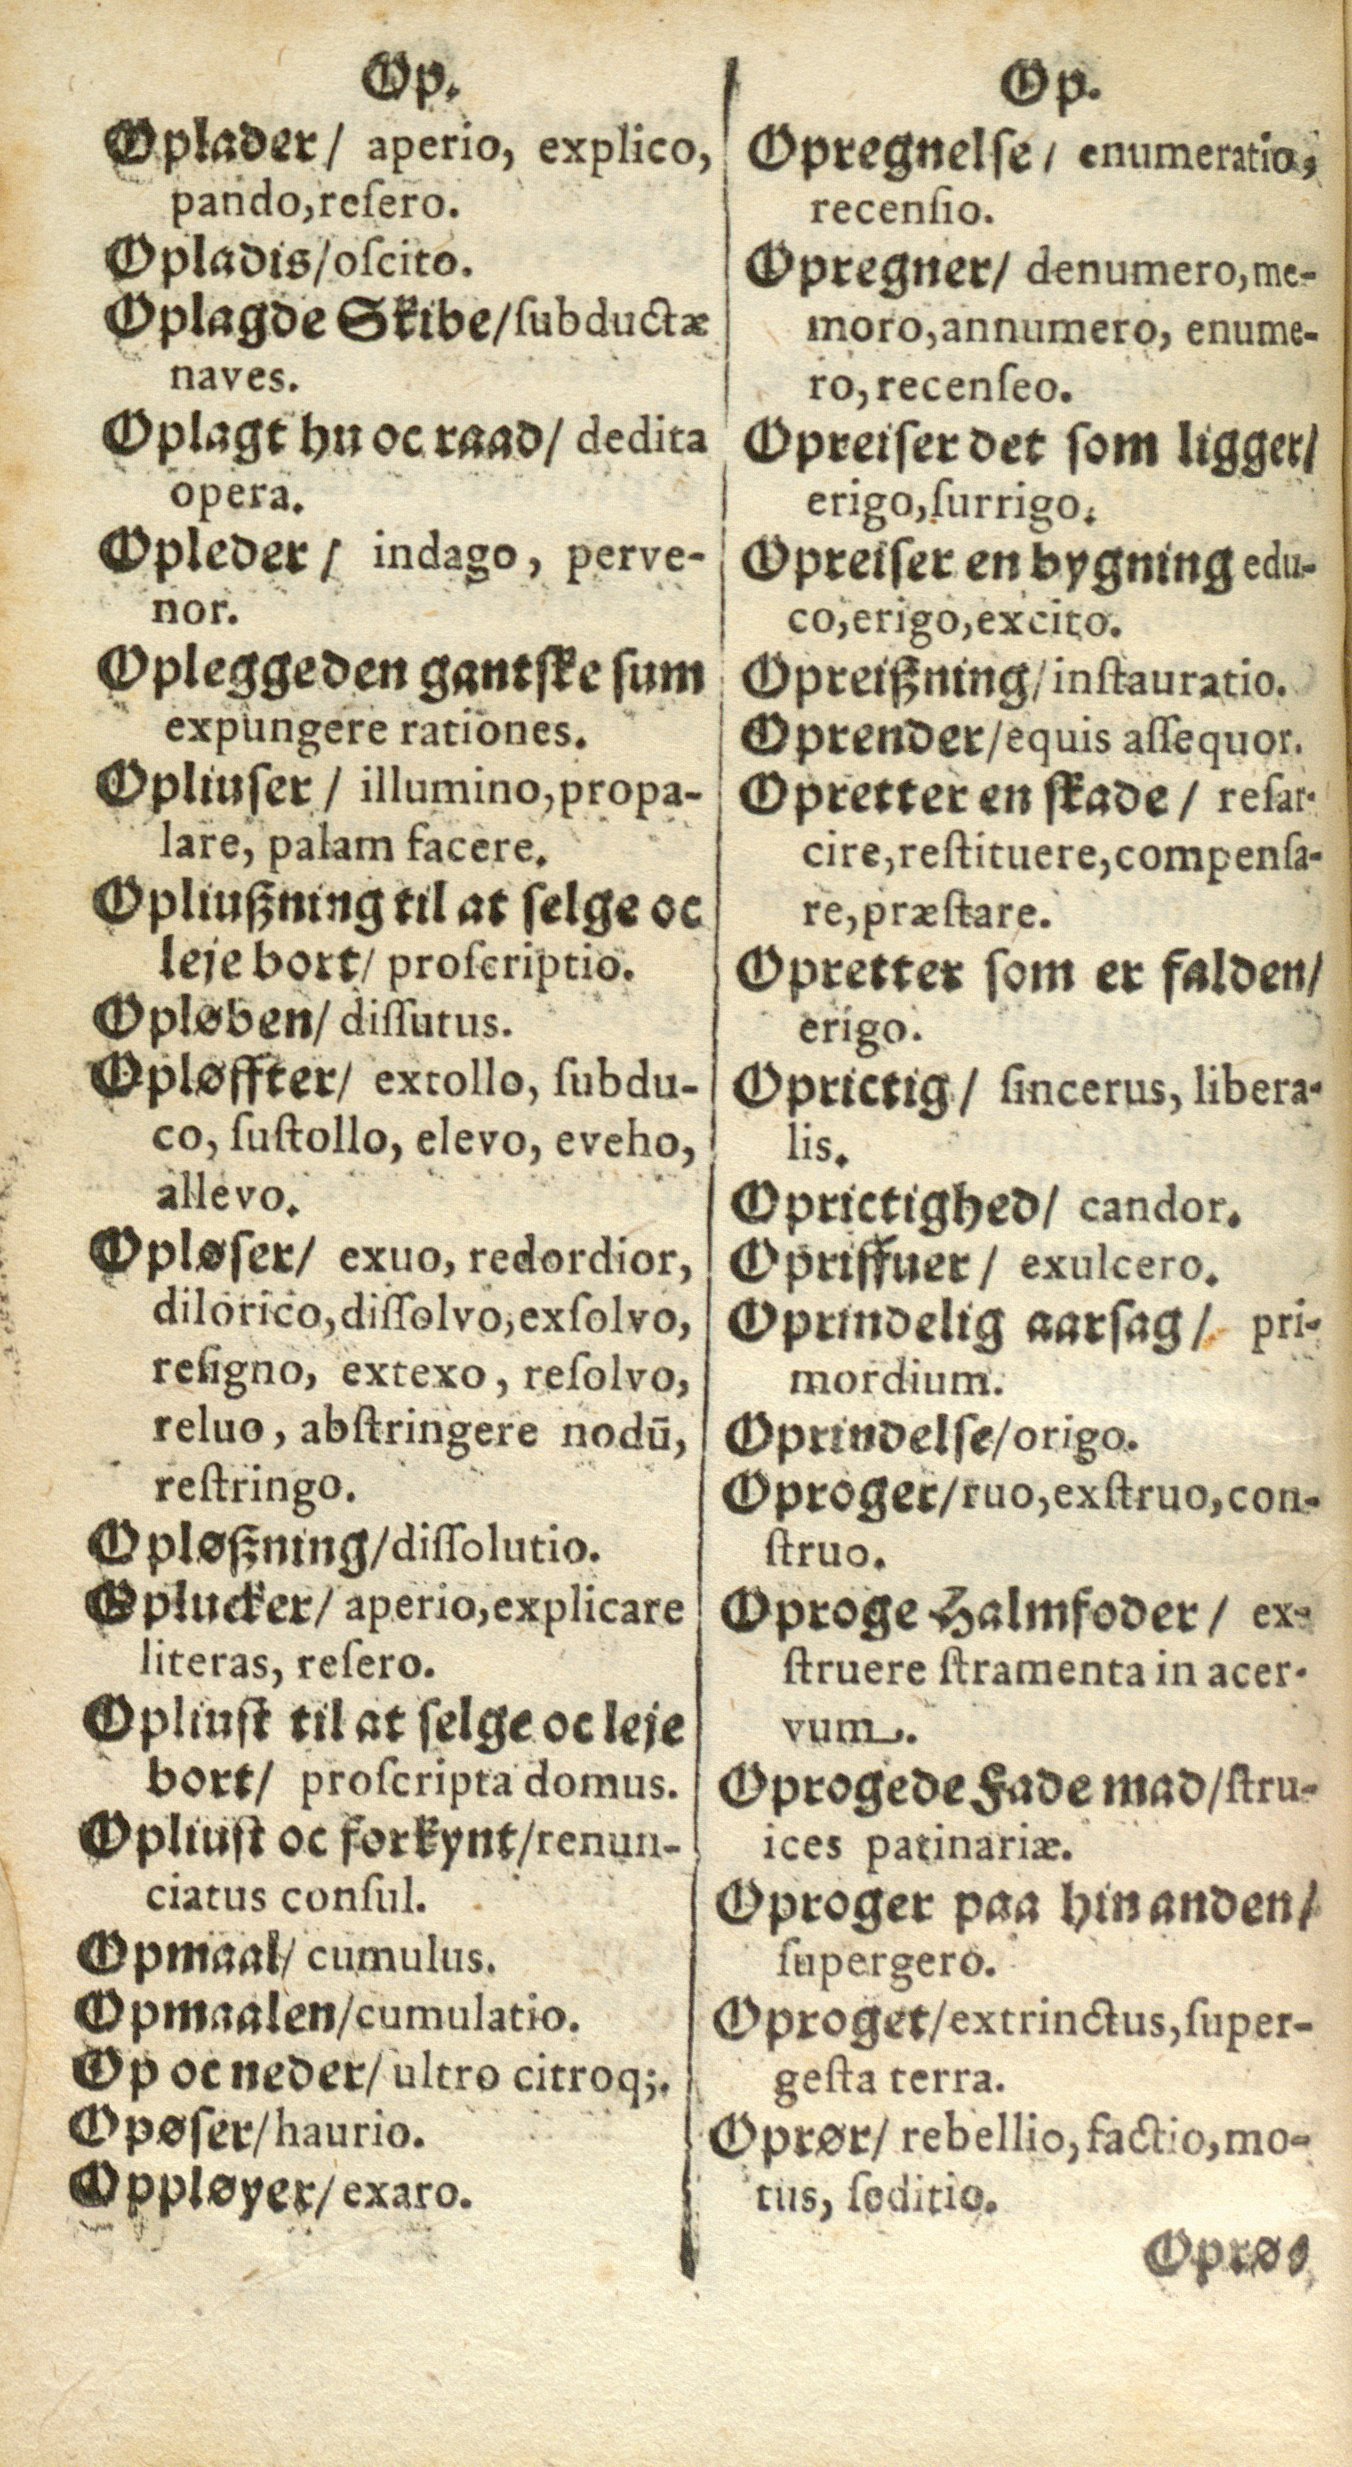 Op.
Oplader/ aperio, explico,
pando,reſero.
Opladis/oſcito.
Oplagde Skibe/ſubductæ
naves.
Oplagt hu oc raad/ dedita
opera.
Opleder/ indago, perve-
nor.
Oplegge den gantſke ſum
expungere rationes.
Opliuſer/ illumino,propa-
lare, palam facere.
Opliuſzning til at ſelge oc
leje bort/ proſcriptio.
Opløben/ diſſutus.
Opløffter/ extollo, ſubdu-
co, ſuſtollo, elevo, eveho,
allevo.
Opløſer/ exuo, redordior,
dilorico,diſſolvo,exſolvo,
reſigno, extexo, reſolvo,
reluo, abſtringere nodū,
reſtringo.
Opløſzning/diſſolutio.
Oplucker/ aperio,explicare
literas, reſero.
Opliuſt til at ſelge oc leje
bort/ proſcripta domus.
Opliuſt oc forkynt/renun-
ciatus conſul.
Opmaal/ cumulus.
Opmaalen/cumulatio.
Op oc neder/ ultro citroq;.
Opøſer/haurio.
Oppløyer/exaro.
Op.
Opregnelſe/ enumeratio,
recenſio.
Opregner/ denumero,me-
moro,annumero, enume-
ro,recenſeo.
Opreiſer det ſom ligger/
erigo,ſurrigo.
Opreiſer en bygning edu-
co,erigo,excito.
Opreiſzning/inſtauratio.
Oprender/equis aſſequor.
Opretter en ſkade/ reſar-
cire,reſtituere,compenſa-
re,præſtare.
Opretter ſom er falden/
erigo.
Oprictig/ ſincerus, libera-
lis.
Oprictighed/ candor.
Opriffuer/ exulcero.
Oprindelig aarſag/ pri-
mordium.
Oprindelſe/origo.
Oproger/ruo,exſtruo,con-
ſtruo.
Oproge Halmfoder/ ex-
ſtruere ſtramenta in acer-
vum.
Oprogede Fade mad/ſtru-
ices patinariæ.
Oproger paa hin anden/
ſupergero.
Oproget/extrinctus,ſuper-
geſta terra.
Oprør/ rebellio,factio,mo-
tus, ſeditio.
Oprøſ